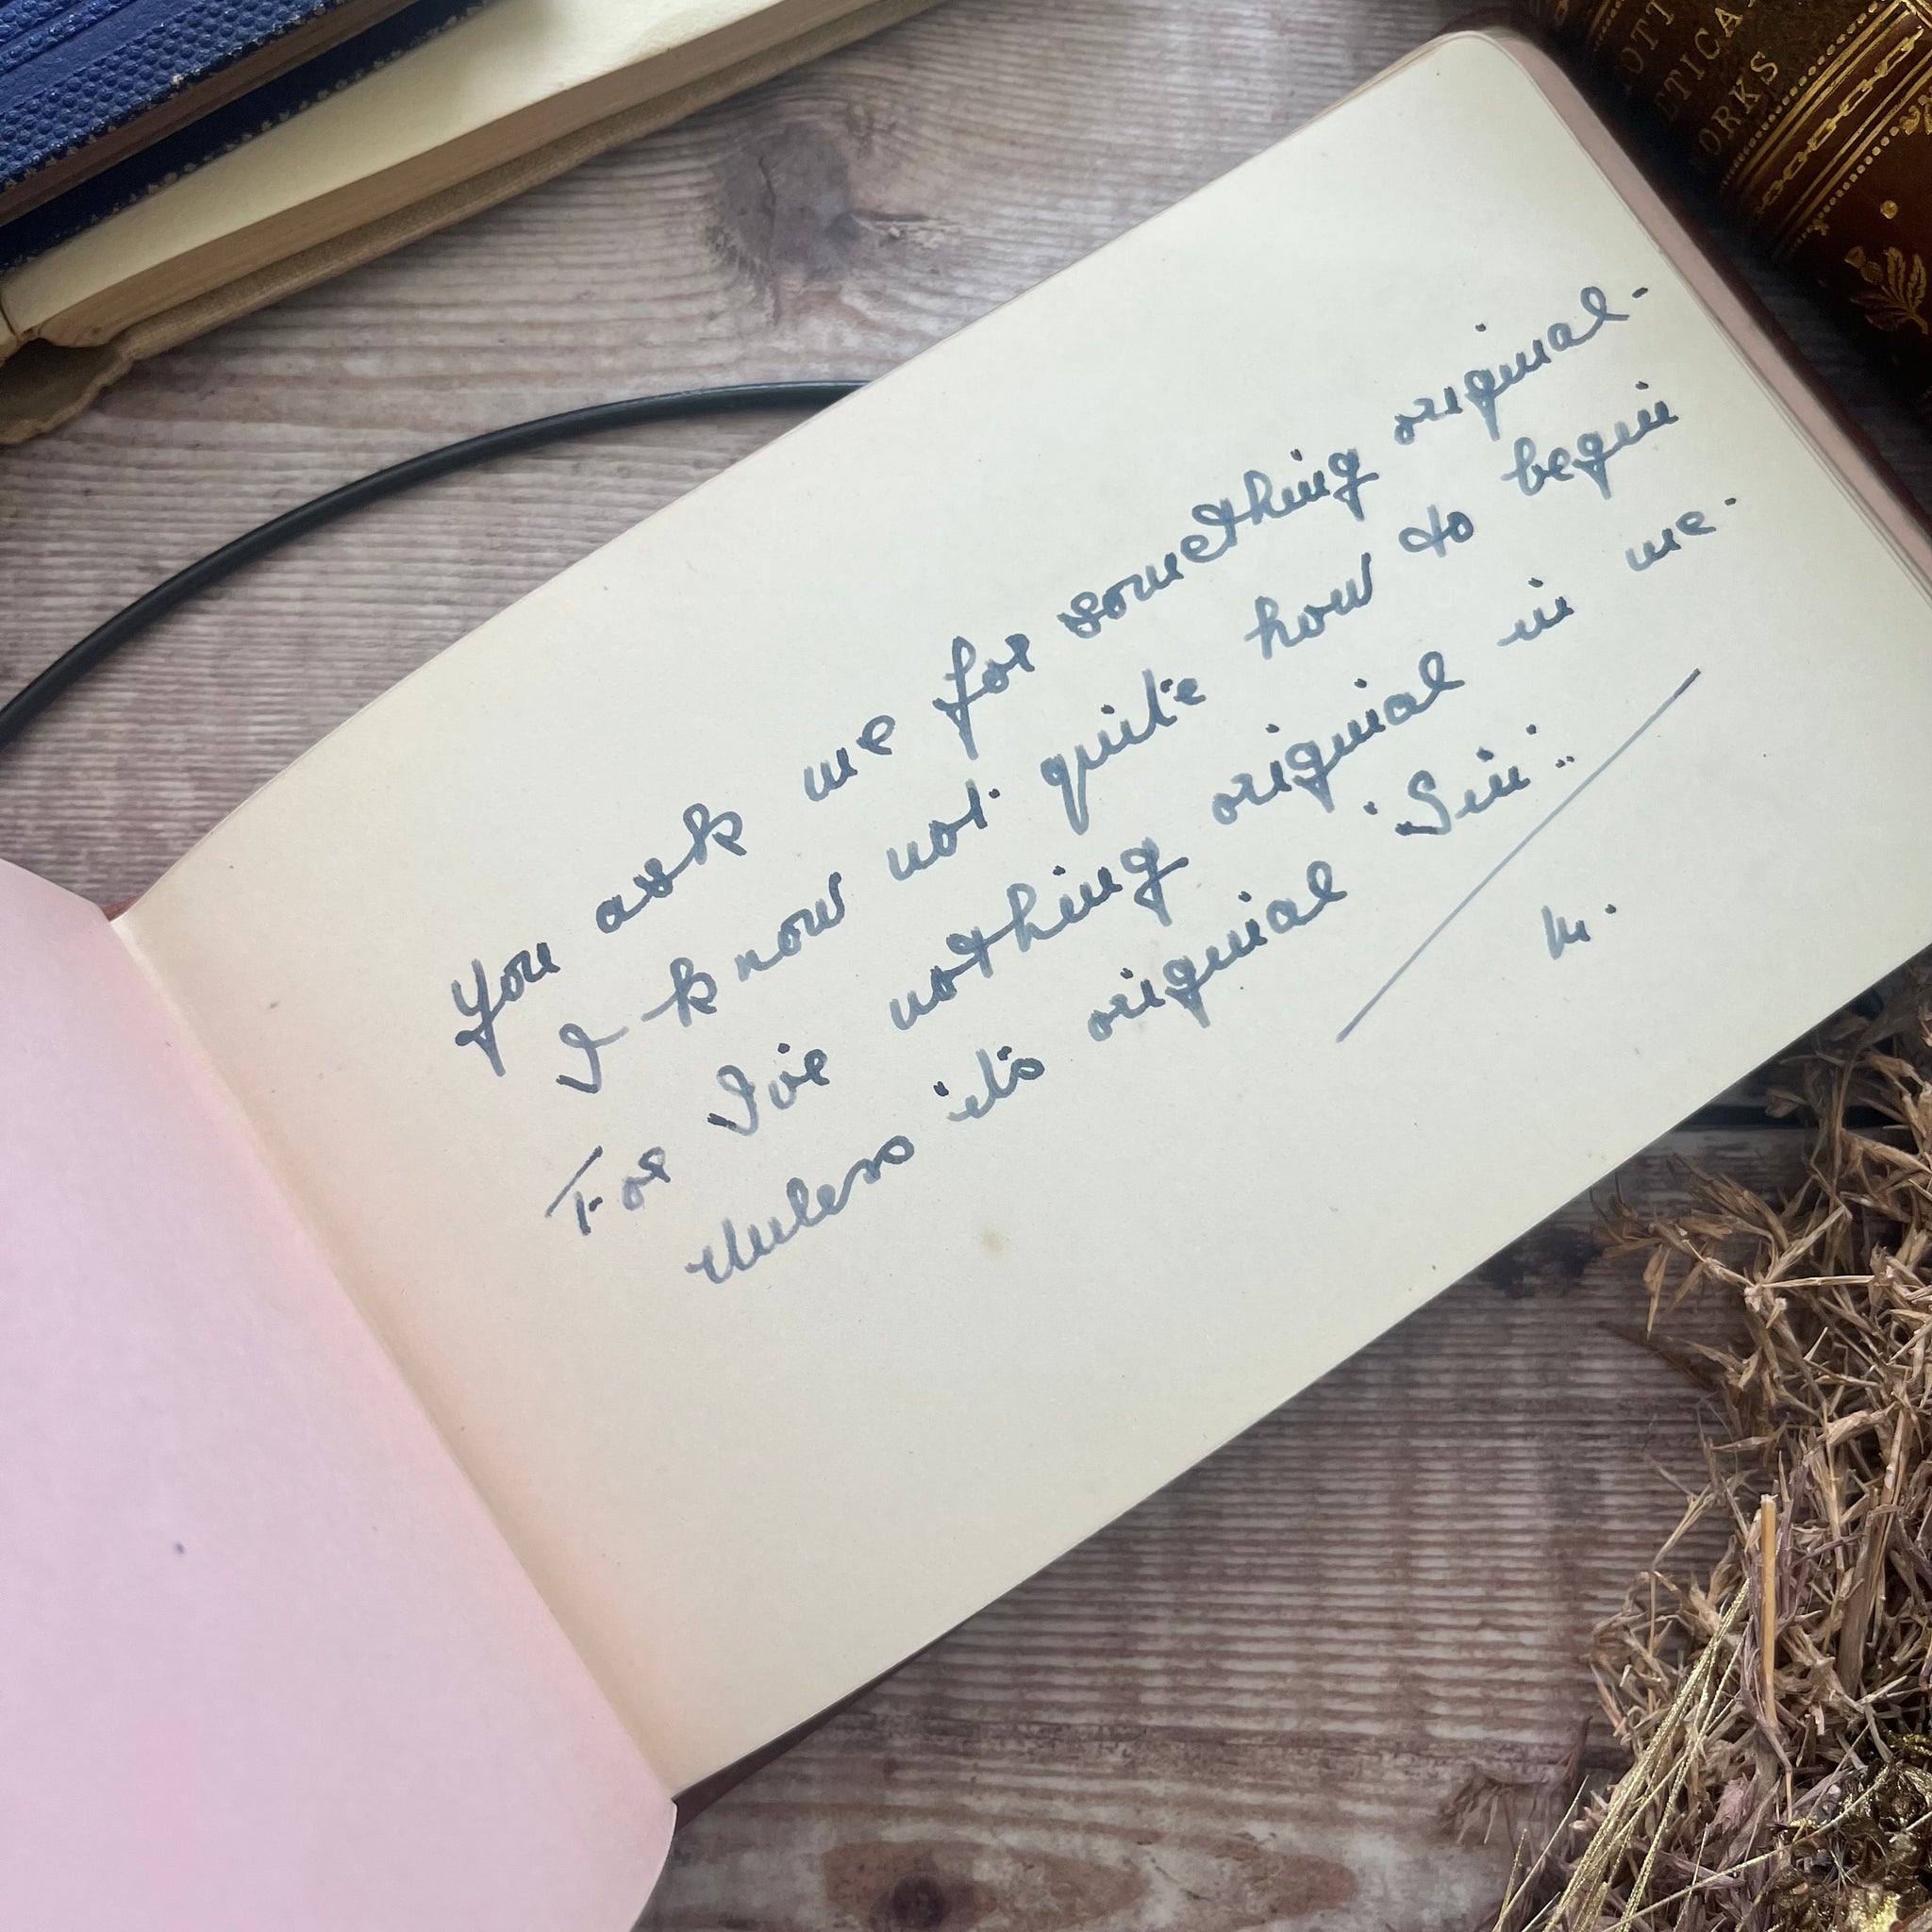 You ask me for something original.
I know not quite how to begin
For I've nothing original in me.
Unless it's original 'Sin'..
M.
OTT
ETICA
ORKS